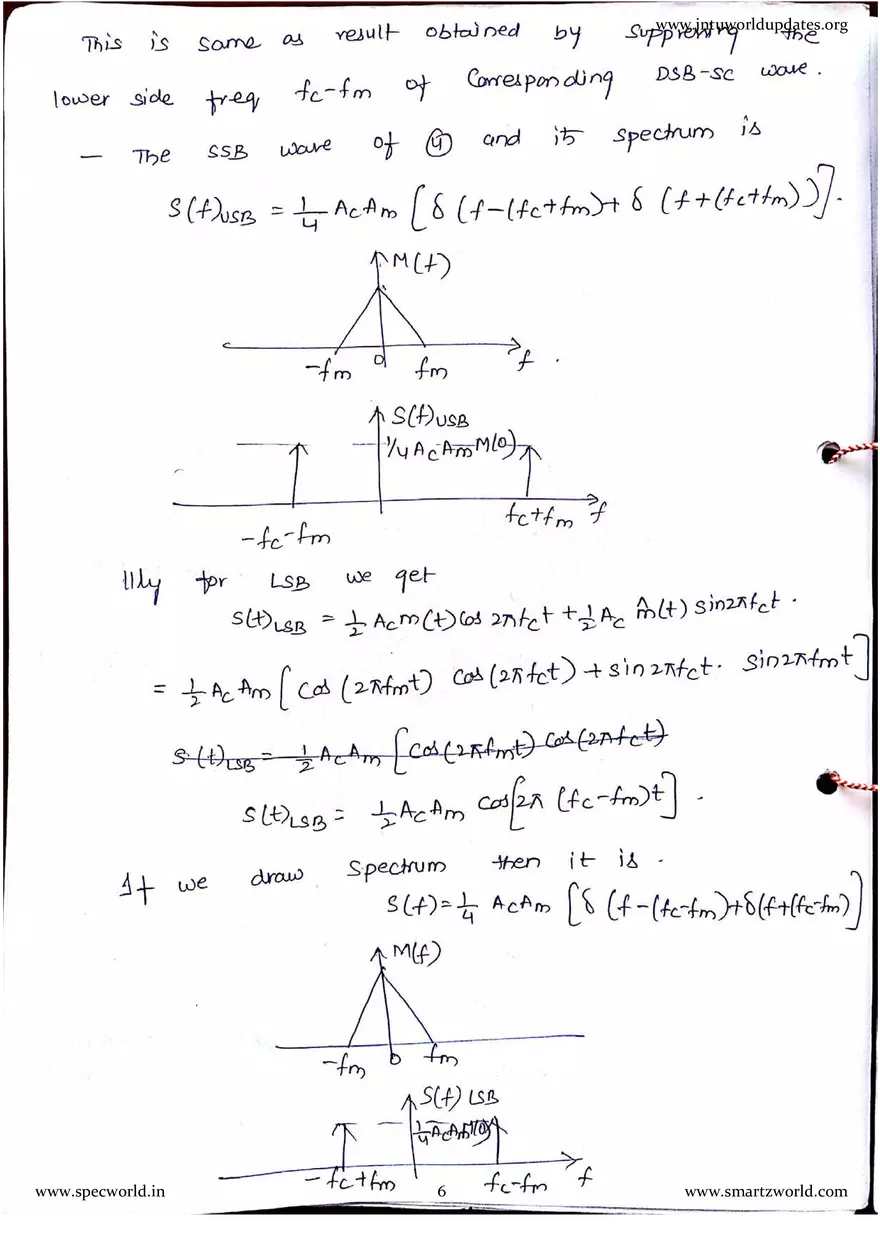 www.jntuworldupdates.org
This is same as result obtained by suppressing the
lower side freq fc-fm of Corresponding DSB-SC wave.
— The SSB wave of ④ and its spectrum is
S(f)USB = 1/4 AcAm [δ (f-(fc+fm)+ δ (f+(fc+fm))].
M(f)
-fm 0 fm f .
S(f)USB
1/4 AcAm M(0)
-fc-fm fc+fm f
lllly for LSB we get
S(t)LSB = 1/2 Acm(t)Cos 2πfct + 1/2 Ac m̂(t) sin2πfct .
= 1/2 AcAm [Cos (2πfmt) Cos(2πfct) + sin2πfct. sin2πfmt]
S(t)LSB = 1/2 AcAm [Cos(2πfmt) Cos(2πfct)
S(t)LSB = 1/2 AcAm Cos[2π (fc-fm)t] .
If we draw spectrum then it is .
S(f)= 1/4 AcAm [δ (f-(fc-fm)+δ(f+(fc-fm)]
M(f)
-fm 0 fm
S(f) LSB
1/4 AcAm M(0)
-fc+fm fc-fm f
www.specworld.in 6 www.smartzworld.com